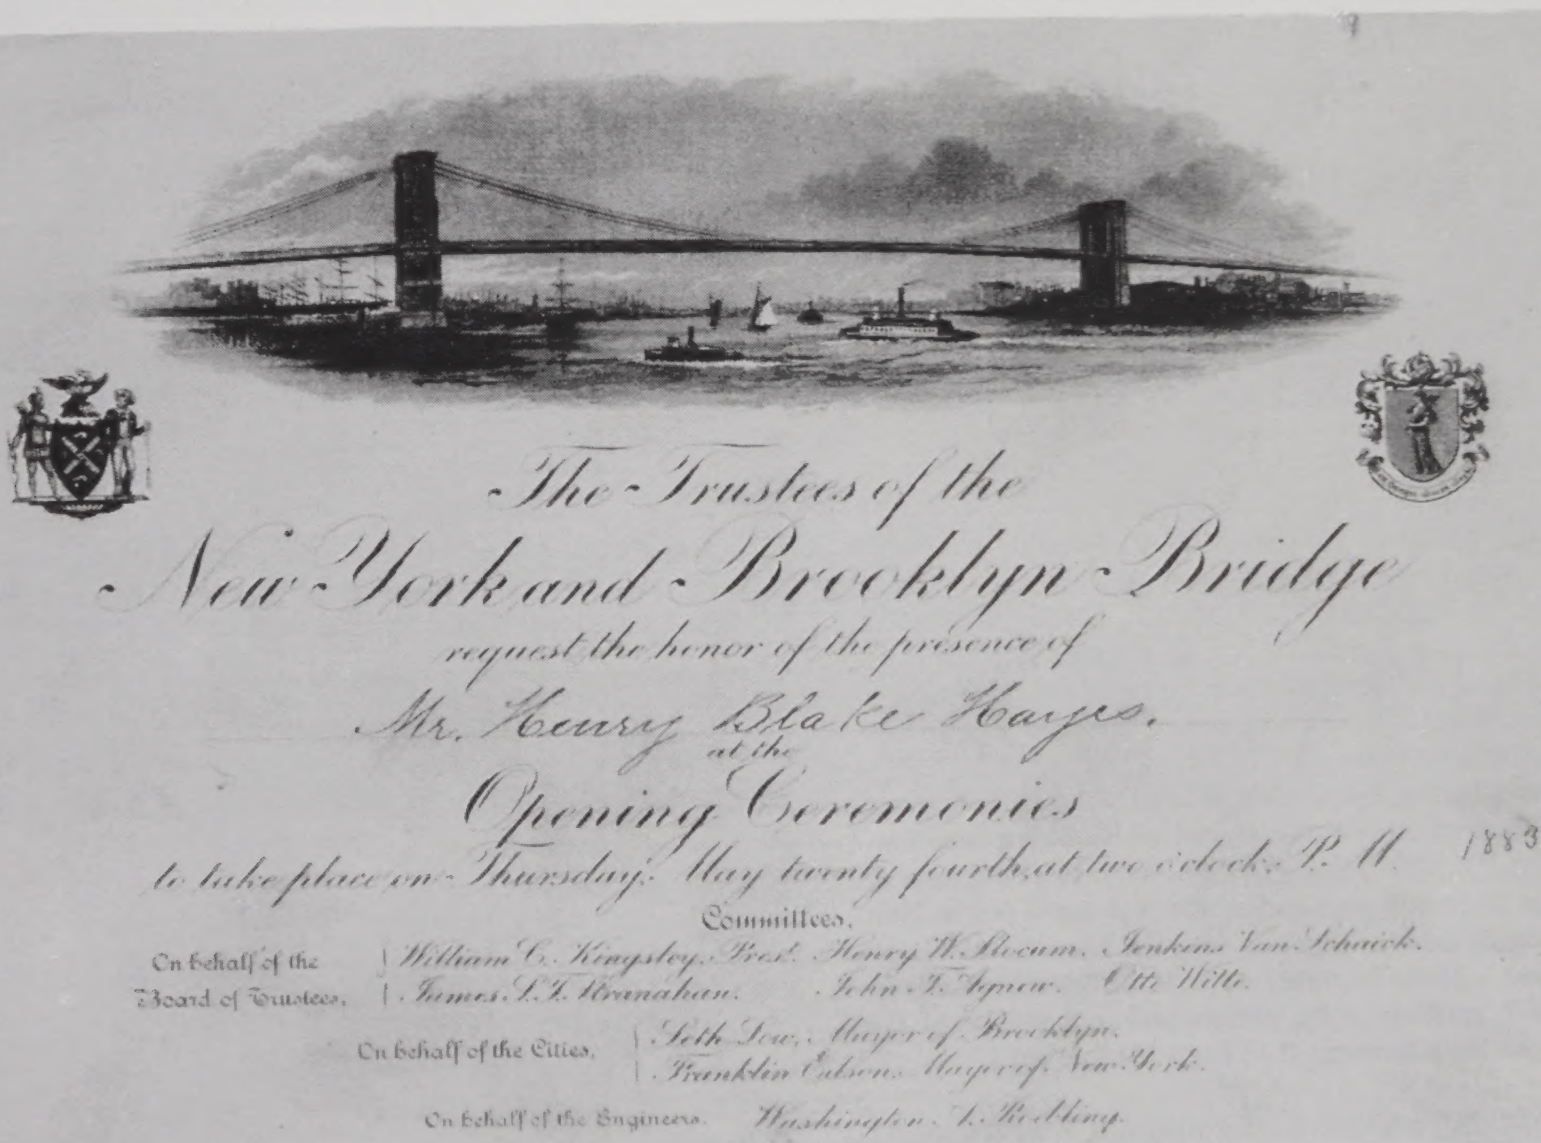 The Trustees of the
New York and Brooklyn Bridge
request the honor of the presence of
Mr. Henry Blake Hayes.
at the
Opening Ceremonies
to take place on Thursday, May twenty fourth, at two o'clock, P. M. 1883
Committees.
On behalf of the Board of Trustees,
William C. Kingsley, Prest. Henry W. Slocum. Jenkins Van Schaick.
James S. T. Stranahan. John T. Agnew. Otto Witte.
On behalf of the Cities,
Seth Low, Mayor of Brooklyn.
Franklin Edson, Mayor of New York.
On behalf of the Engineers. Washington A. Roebling.